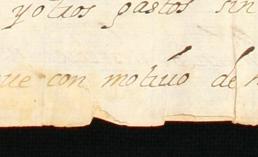 yotros gastos sin
que con motiuo de